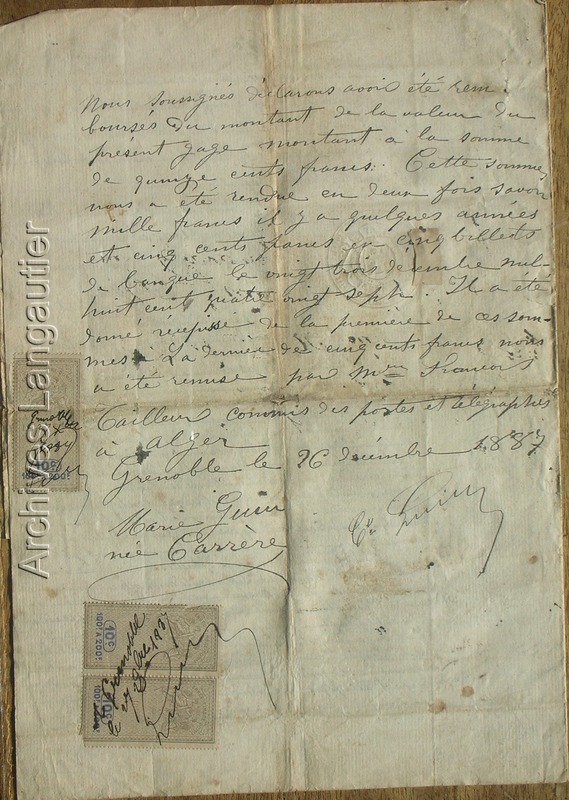 Nous soussignés déclarons avoir été rem-
boursés du montant de la valeur du
présent gage montant à la somme
de quinze cents francs. Cette somme
nous a été rendue en deux fois savoir
mille francs il y a quelques années
et cinq cents francs en cinq billets
de banque le vingt trois décembre mil
huit cent quatre vingt sept. Il a été
donné récépissé de la première de ces som-
mes. La dernière de cinq cents francs nous
a été remise par
Tailleur commis des postes et télégraphes
à Alger
Grenoble le 26 décembre 1887
Marie
née Carrère
10c
100f à 200f
Grenoble
10c
100f à 200f
10c
100f à 200f
Archives Langautier